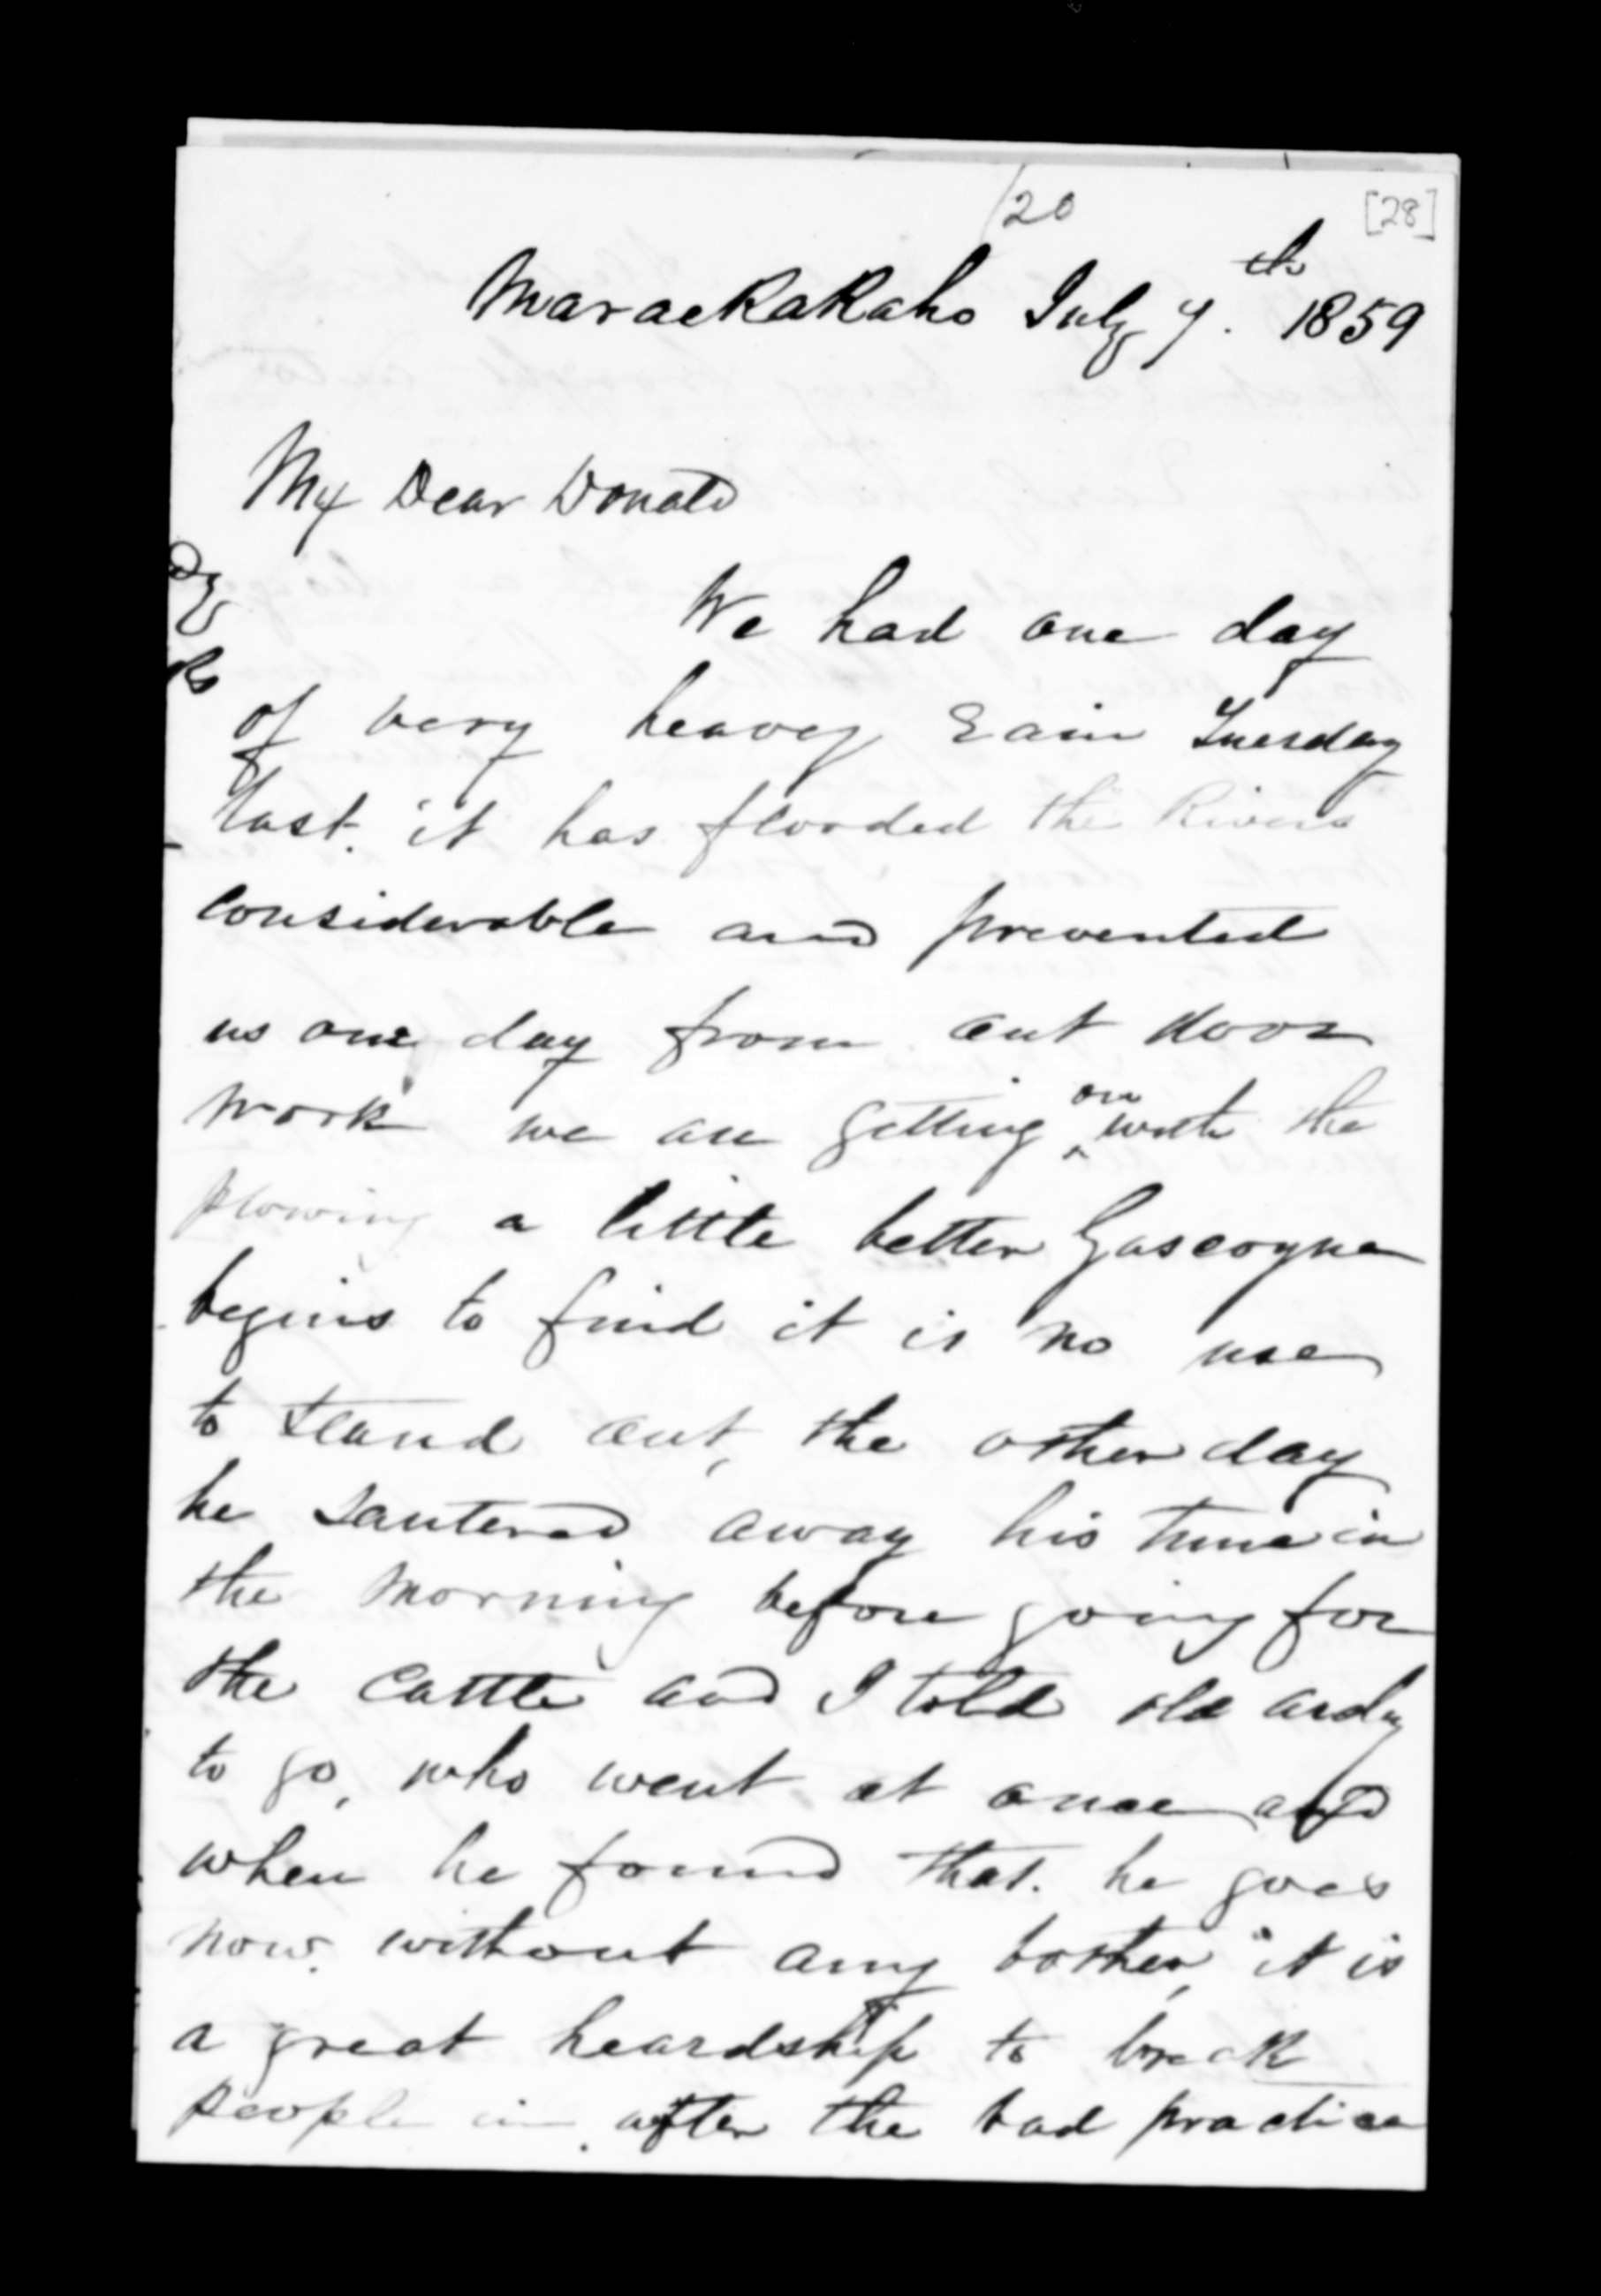 120 [28]
Maraekakaho July 7th. 1859
My Dear Donald
We had one day
of very heavey Rain Tuesday
last. it has flooded the Rivers
considerable and prevented
us one day from out door
work we are getting on with the
plowing a little better Gascoyne
begins to find it is no use
to stand out, the other day
he santered away his time in
the morning before going for
the cattle and I told old andy
to go, who went at once and
when he found that. he goes
now. without any bother, it is
a great heardship to break
people in. after the bad practice